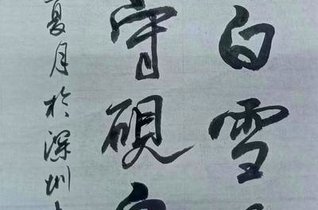 白雪
守砚
夏月於深圳